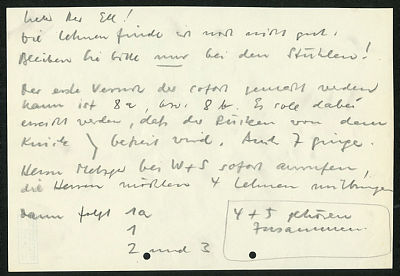 lieber Herr Ell!
die Lehnen finde ich noch nicht gut.
Bleiben Sie bitte nur bei den Stühlen!
Der erste Versuch der sofort gemacht werden
kann ist 8a, bzw. 8b. Es soll dabei
erreicht werden, daß der Rücken von dem
Knick befreit wird. Auch 7 ginge.
Herrn Metzger bei W+S sofort anrufen,
die Herren möchten 4 Lehnen mitbringen
Dann folgt 1a
1
2 und 3
4 + 5 gehören
zusammen.